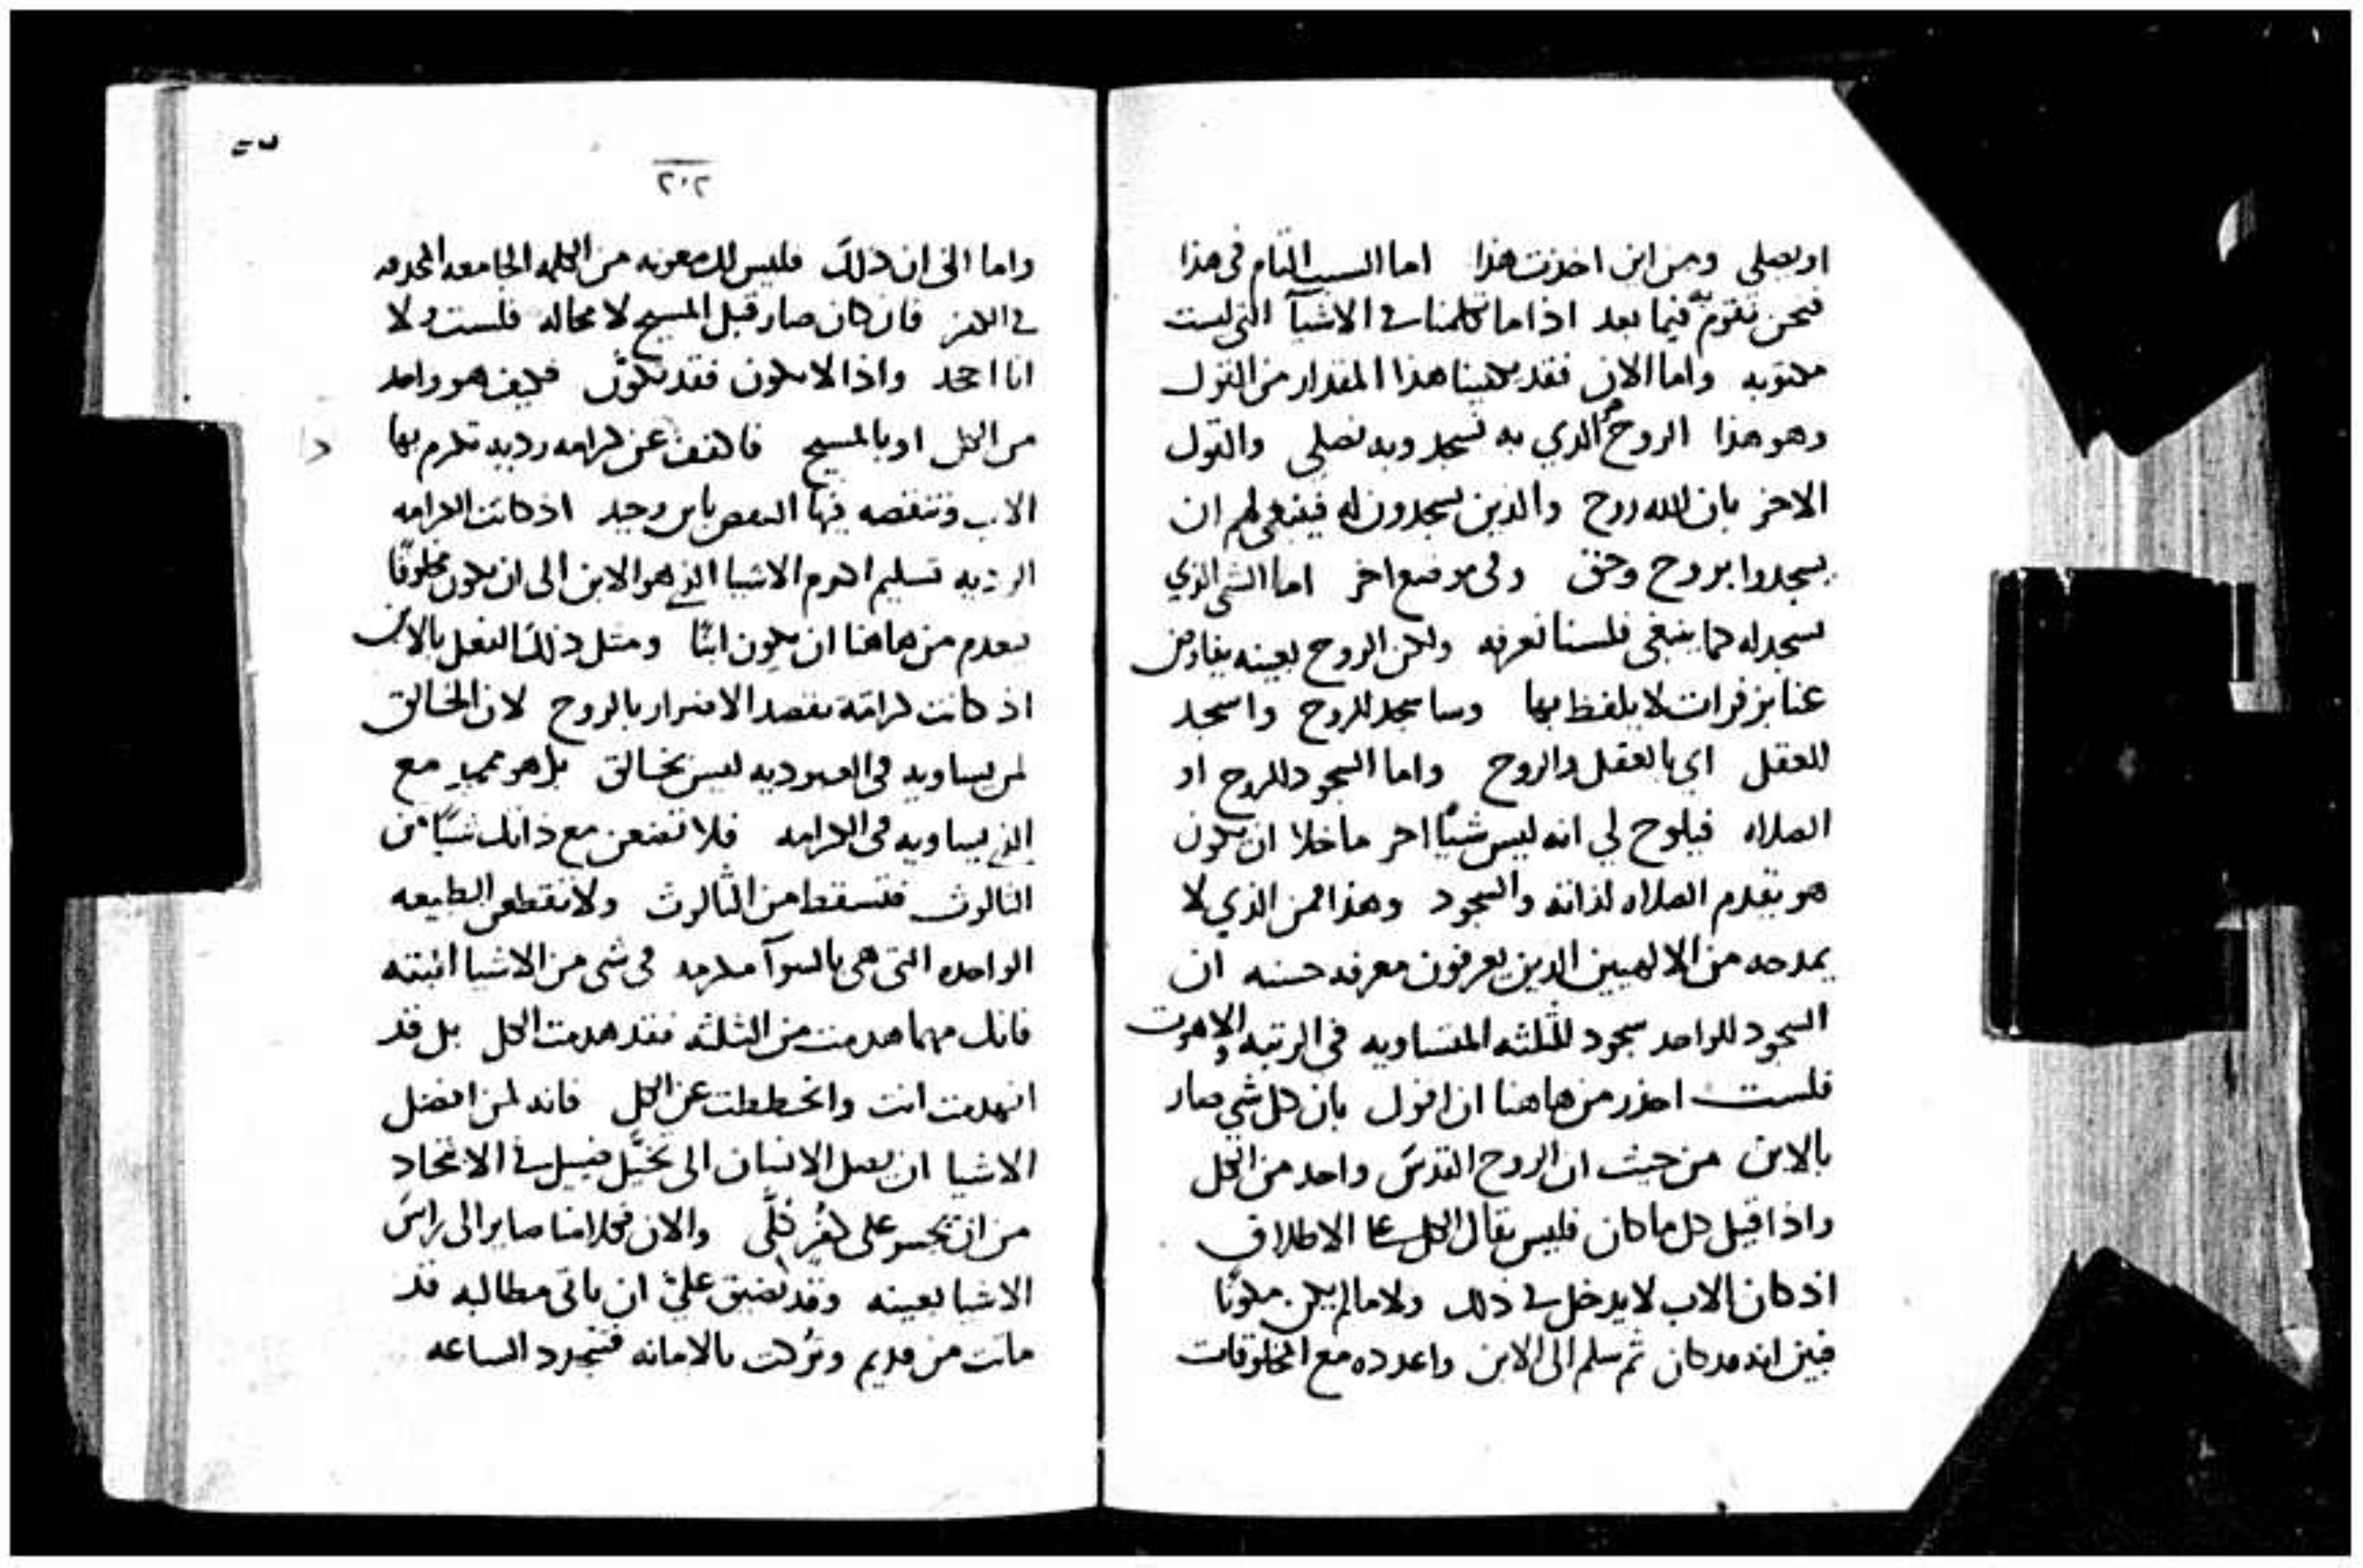 او يصلي ومن اين اخذت هذا اما السبب التام في هذا
فنحن نقوم به فيما بعد اذا ما تكلمنا في الاشيآ التي ليست
مكتوبه واما الان فقد يكفينا هذا المقدار من القول
وهو هذا الروح هو الذي به نسجد وبه نصلي والقول
الاخر بان الله روح والذين يسجدون له فينبغي لهم ان
يسجدوا بروح وحق وفي موضع اخر اما الشي الذي
نسجد له كما ينبغي فلسنا نعرفه ولكن الروح بعينه يفاوض
عنا بزفرات لا يلفظ بها وساسجد للروح واسجد
للعقل اي بالعقل والروح واما السجود للروح او
الصلاه فيلوح لي انه ليس شيًا اخر ما خلا ان يكون
هو يقدم الصلاه لذاته والسجود وهذا فمن الذي لا
يمدحه من الالهيين الذين يعرفون معرفه حسنه ان
السجود للواحد سجود للثلثه المتساويه في الرتبه واللاهوت
فلست احذر من هاهنا ان اقول بان كل شي صار
بالابن من حيث ان الروح القدس واحد من الكل
واذا قيل كل ما كان فليس يقال الكل على الاطلاق
اذ كان الاب لا يدخل في ذلك ولا ما لم يكن مكونًا
فبين انه قد كان ثم سلم الى الابن واعدده مع المخلوقات
٢٠٢
واما الى ان ذلك فليس لك معونه من الكلمه الجامعه
في الكفر فان كان صار قبل المسيح لا محاله فلست ولا
انا اجحد واذا لا يكون فقد تكوّن فكيف هو واحد
من الكل او بالمسيح فاكفف عن كرامه رديه تكرم بها
الاب وتنقصه فيها بابن وحيد اذ كانت الكرامه
الرديه تسليم اكرم الاشيا الذي هو الابن الى ان يكون مخلوقًا
يعدم من هاهنا ان يكون ابنًا ومثل ذلك الفعل بالابن
اذ كانت كرامة بقصد الاضرار بالروح لان الخالق
لمن يساويه في العبوديه ليس بخالق بل هو ممجد مع
الذي يساويه في الكرامه فلا تضعن مع ذاتك شيًا من
الثالوث فتسقط من الثالوث ولا تقطعن الطبيعه
الواحده التي هي بالسوآ مكرمه في شي من الاشيا البته
فانك مهما هدمت من الثلثه فقد هدمت الكل بل قد
انهدمت انت وانحططت عن الكل فانه لمن افضل
الاشيا ان يصل الانسان الى تخيّل ضيل في الاتحاد
من ان يجسر على كفر كلّي والان فكلامنا صاير الى راس
الاشيا بعينه وقد يضيق عليّ ان ياتي مطالبه قد
ماتت من قديم وتركت بالامانه فتجدد الساعه